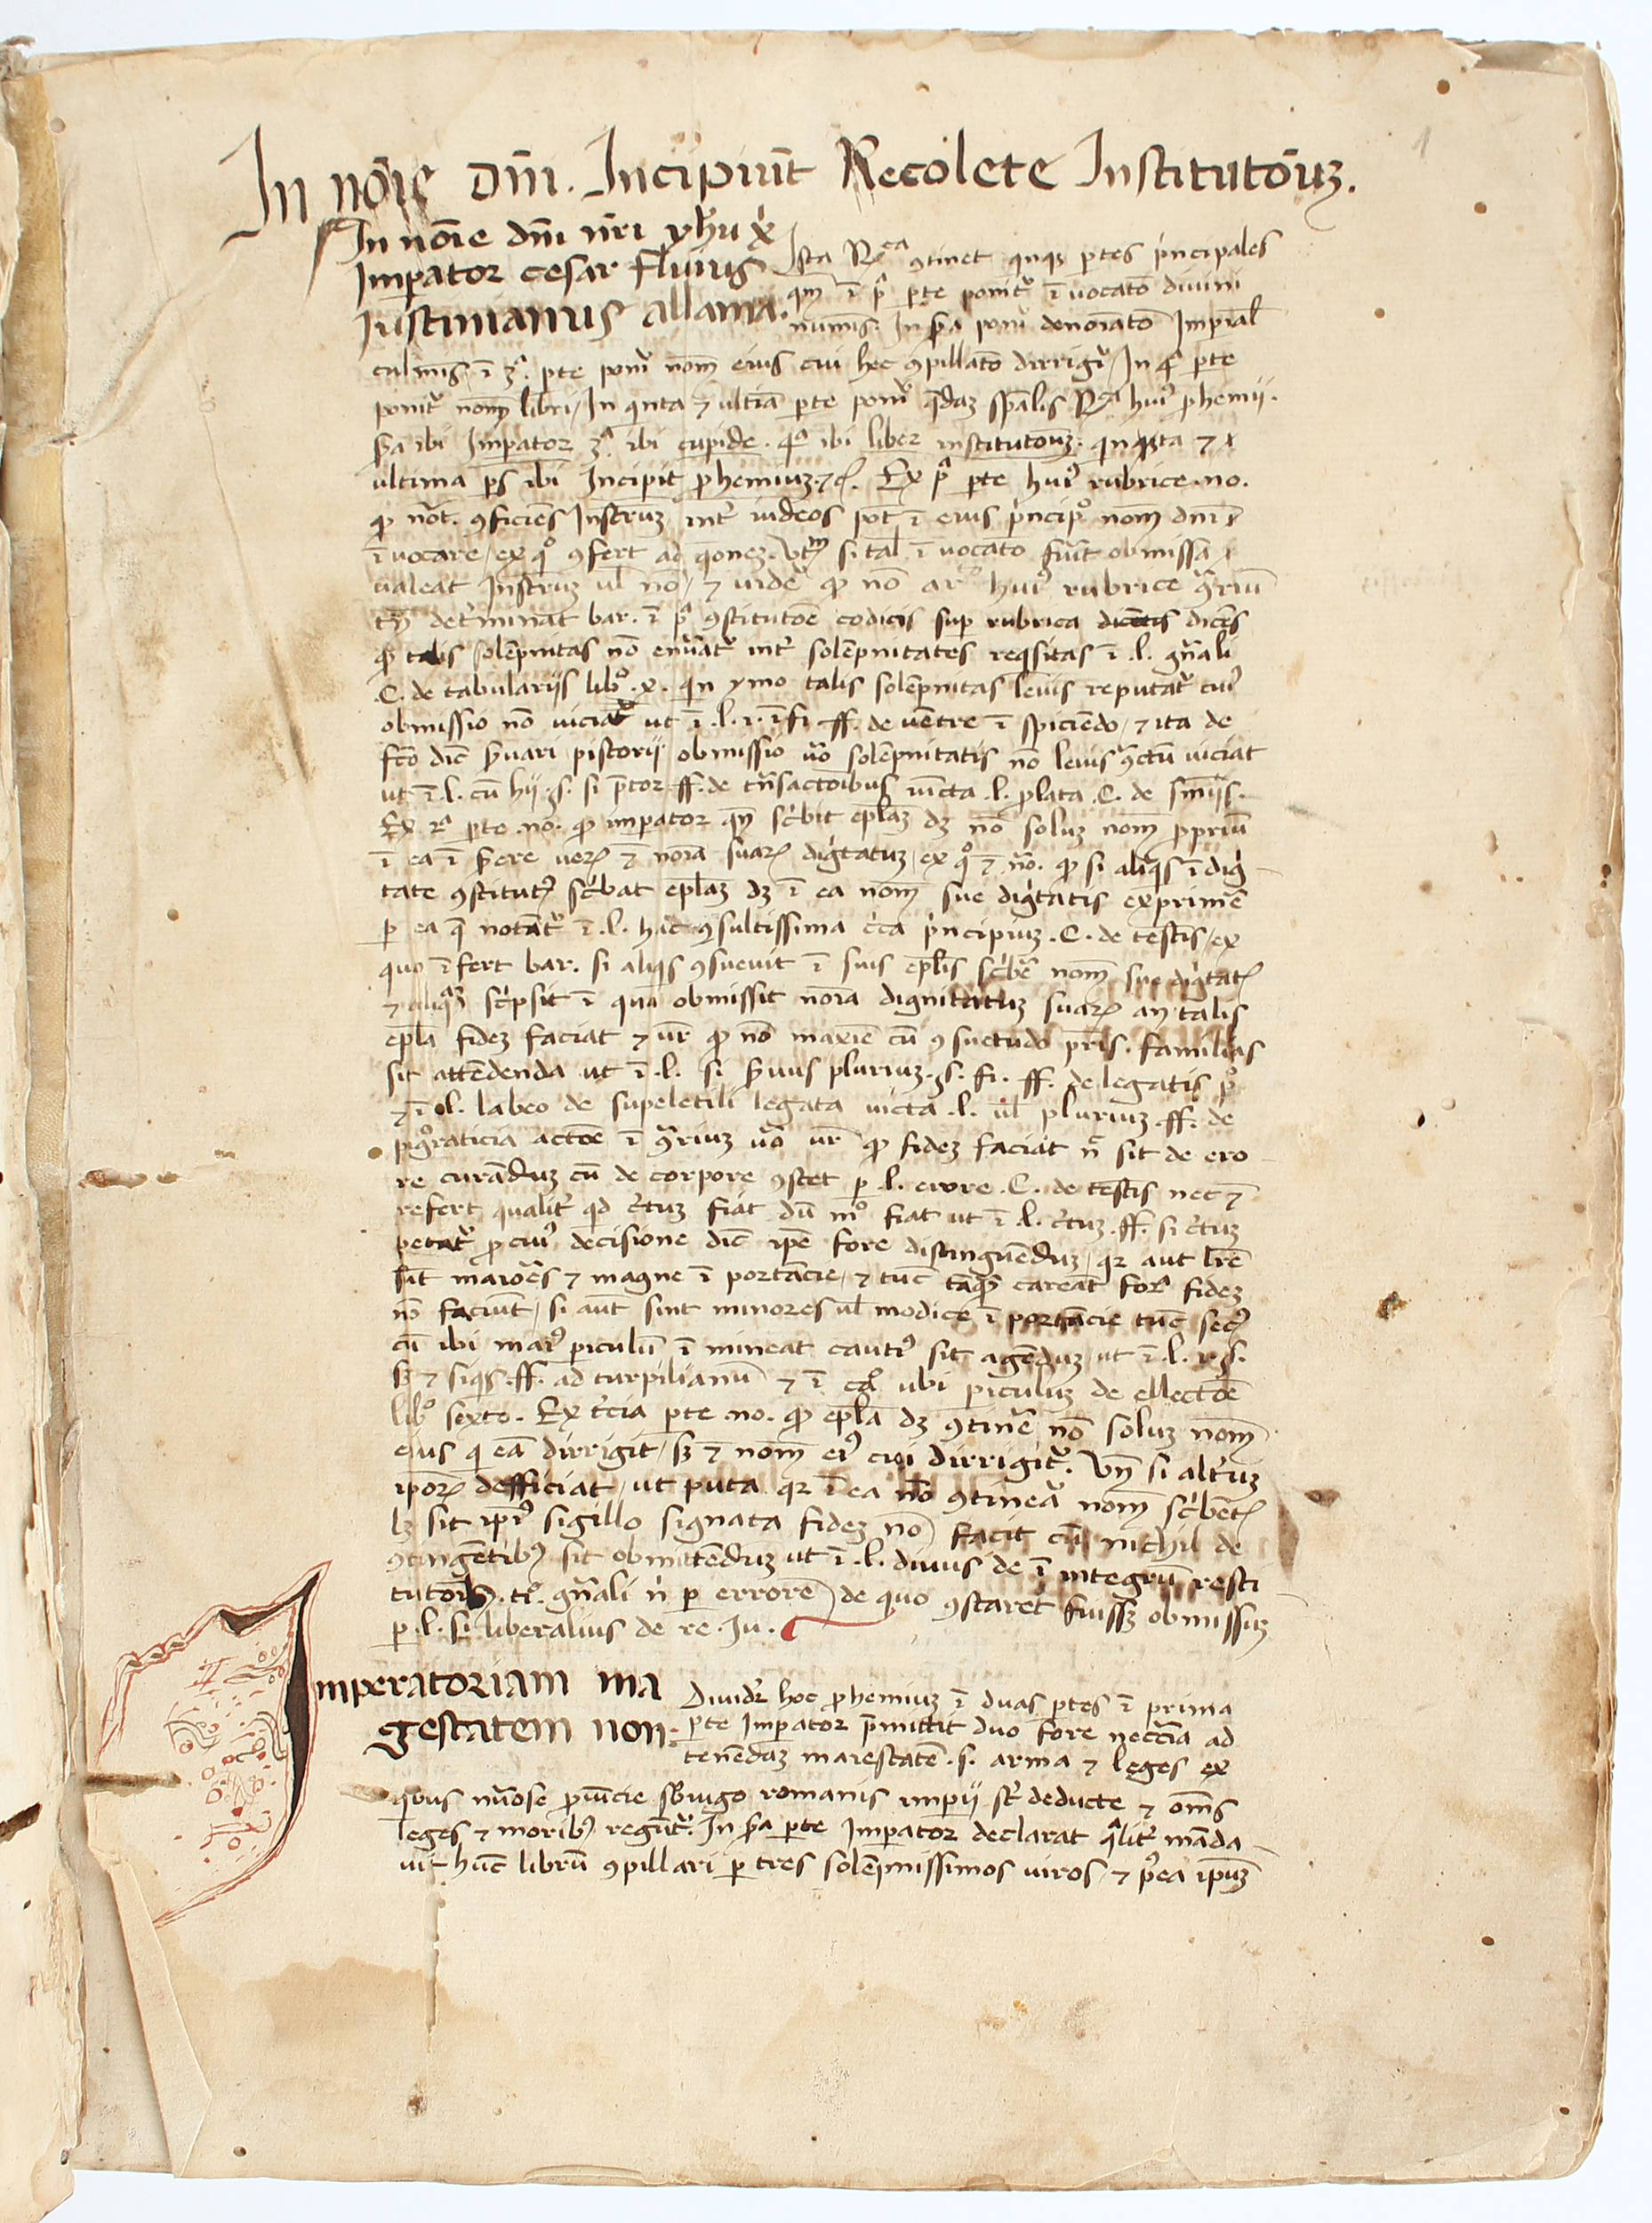 1
In nōie dm̄. Incipiūt Recolete Institutōuꝫ.
In nōie dm̄ nr̄i yhu x
Imperator cesar flavius
Iustinianus allama.
Ista Rca ꝯtinet qnqꝫ ꝑtes principales
qm̄ ī pa ꝑte ponit ī vocatō divini
numīs. In sa ponit denoīatō Impīal
culmīs. ī 3a. pte ponit nom̄ eius cui hec ꝯpillatō dirrigit / In qa ꝑte
ponit nom̄ libri / In qnta ⁊ ultīa ꝑte ponit qdaꝫ spālis Rca huiꝰ ꝓhemii.
sa ibi Impator 3a ibi cupide. qa ibi liber institutōuꝫ. qnta ⁊
ultima ps ibi Incipit ꝓhemiuꝫ ⁊c. Ex pa ꝑte huiꝰ rubrice no.
ꝙ nōt. ꝯficiēs Instruꝫ int iudeos pōt ī eius pncipo nom̄ dm̄
ī vocare / ex qo ꝯfert ad qōneꝫ. Vtm̄ si tal ī vocato fuit obmissa
valeat Instruꝫ vl nō / ⁊ videt ꝙ nō aro huiꝰ rubrice ꝯriū
tn̄ determinat bar. ī pa ꝯstitutōe codicis sup rubrica dicētis dicēs
ꝙ talis solēpnitas nō enuāt int solēpnitates reqsitas ī .l. gn̄ali
.C. de tabulariis libo .x. qn ymo talis solēpnitas levis reputat cuiꝰ
obmissio nō viciat ut ī .l. 1. ī fi ff. de vētre ī spiciēdo / ⁊ ita de
fcō dic̄ svari pistorii obmissio vo solēpnitatis nō levis ꝯctū viciat
ut ī .l. cū hii .§. si p̄tor ff. de tn̄sactōibus iūcta .l. ꝓlata .C. de sn̄iis.
Ex 2a ꝑte .no. ꝙ impator qn̄ scbit epl̄aꝫ dꝫ nō soluꝫ nom̄ ꝓpriū
ī ea ī serere veꝝ ⁊ noīa suaꝝ digtatuꝫ / ex qo ⁊ no. ꝙ si aliqs ī dig
tate ꝯstitutꝰ scbat epl̄aꝫ dꝫ ī ea nom̄ sue digtatis exprimē
ꝑ ea q̄ notāt ī .l. hac ꝯsultissima circa principiuꝫ .C. de testis / ex
quo ī fert bar. si aliqs ꝯsuevit ī suis epl̄is scbē nom̄ sue digtatꝭ
⁊ aliqaꝫ scpsit ī qua obmissit noīa dignitatuꝫ suaꝝ an talis
epl̄a fideꝫ faciat ⁊ vr̄ ꝙ nō maxīe cū ꝯsuetudo pr̄is. familias
sit attēdenda ut ī .l. si svus pluriuꝫ .§. fi. ff. de legatis po
⁊ ī .l. labeo de supeletili legata iūcta .l. vl pluriuꝫ ff. de
pigoraticia actōe ī ꝯriuꝫ vo vr̄ ꝙ fideꝫ faciat n̄ sit de ero
re curāduꝫ cū de corpore ꝯstet ꝑ .l. erore .C. de testis nec ⁊
refert qualit qd ctuꝫ fiat dū mo fiat ut ī .l. ctuꝫ .ff. si ctuꝫ
petat ꝓ cuiꝰ decisione dic̄ ipe fore distinguēduꝫ / qꝛ aut lr̄e
sūt maiores ⁊ magne ī portācie / ⁊ tūc tāqꝫ careāt forā fideꝫ
nō faciūt / si aūt sint minores vl modice ī portācie tūc secꝰ
cū ibi maiꝰ ꝑiculū ī mineat cautiꝰ sit agēduꝫ ut ī .l. 1. §.
sꝫ ⁊ siqs .ff. ad turpilianū ⁊ ī ca ubi ꝑiculuꝫ de ellectōe
libo sexto. Ex tcia ꝑte .no. ꝙ epl̄a dꝫ ꝯtinē nō soluꝫ nom̄
eius q eā dirrigit / sꝫ ⁊ nom̄ eiꝰ cui dirrigit. Vn̄ si altuꝫ
ipoꝝ defficiat / ut puta qꝛ ī ea nō ꝯtinea nom̄ scbētꝭ
lꝫ sit ipiꝰ sigillo signata fideꝫ nō facit cū nichil de
ꝯtingētibꝰ sit obmittēduꝫ ut ī .l. divus de ī integrū resti
tutōibꝫ. tt̄. gn̄ali n ꝑ errorē de quo ꝯstaret fuissꝫ obmissuꝫ
ꝑ .l. si liberalius de re. Iu.
Imperatoriam ma
gestatem non.
Dividit hoc ꝓhemiuꝫ ī duas ꝑtes ī prima
ꝑte Impator p̄mittit duo fore neccīa ad
tenēdaꝫ maiestatē .s. arma ⁊ leges ex
qbus nūose ꝓvīcie sbiugo romanis impii st deducte ⁊ om̄s
leges ⁊ moribꝰ regūt. In sa ꝑte Imperator declarat qalit māda
vit hūc librū ꝯpillari ꝑ tres solēpnissimos viros / ⁊ pea ipuꝫ